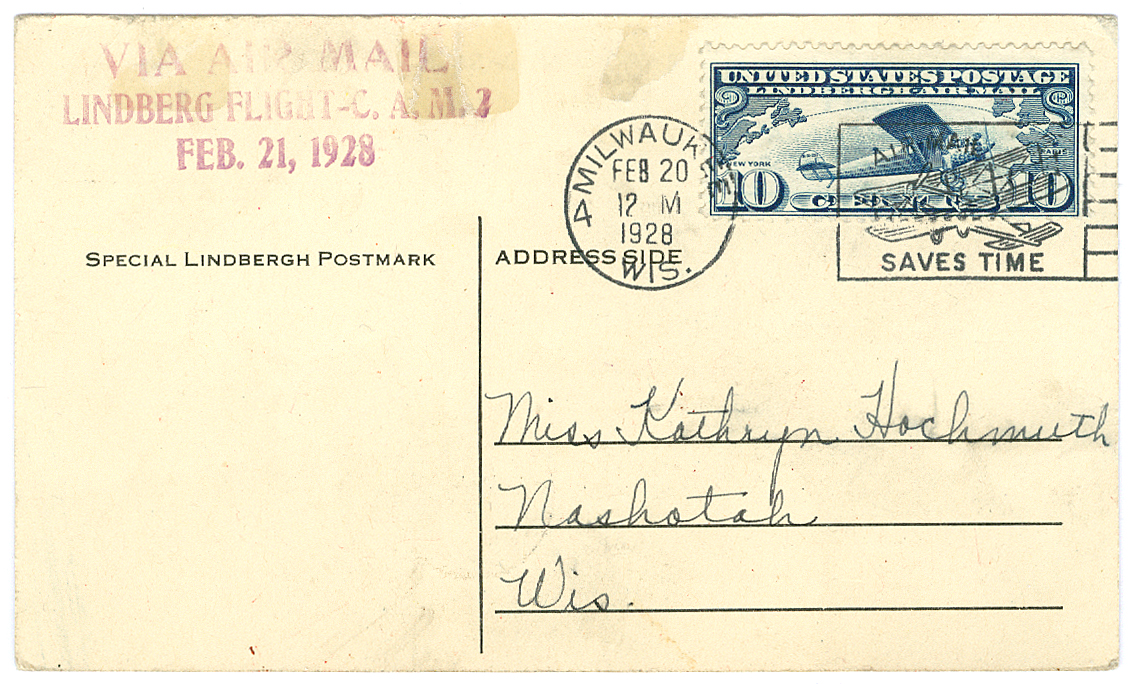 VIA AIR MAIL
LINDBERG FLIGHT-C. A. M. 2
FEB. 21, 1928
UNITED STATES POSTAGE
LINDBERGH AIR MAIL
NEW YORK
PARIS
10 CENTS 10
MILWAUKEE
FEB 20
12 M
1928
WIS.
4
AIR MAIL
SAVES TIME
SPECIAL LINDBERGH POSTMARK
ADDRESS SIDE
Miss Kathryn Hochmuth
Nashotah
Wis.